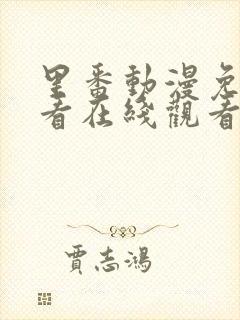 里番動漫免
看在綫觀看
賈志鴻